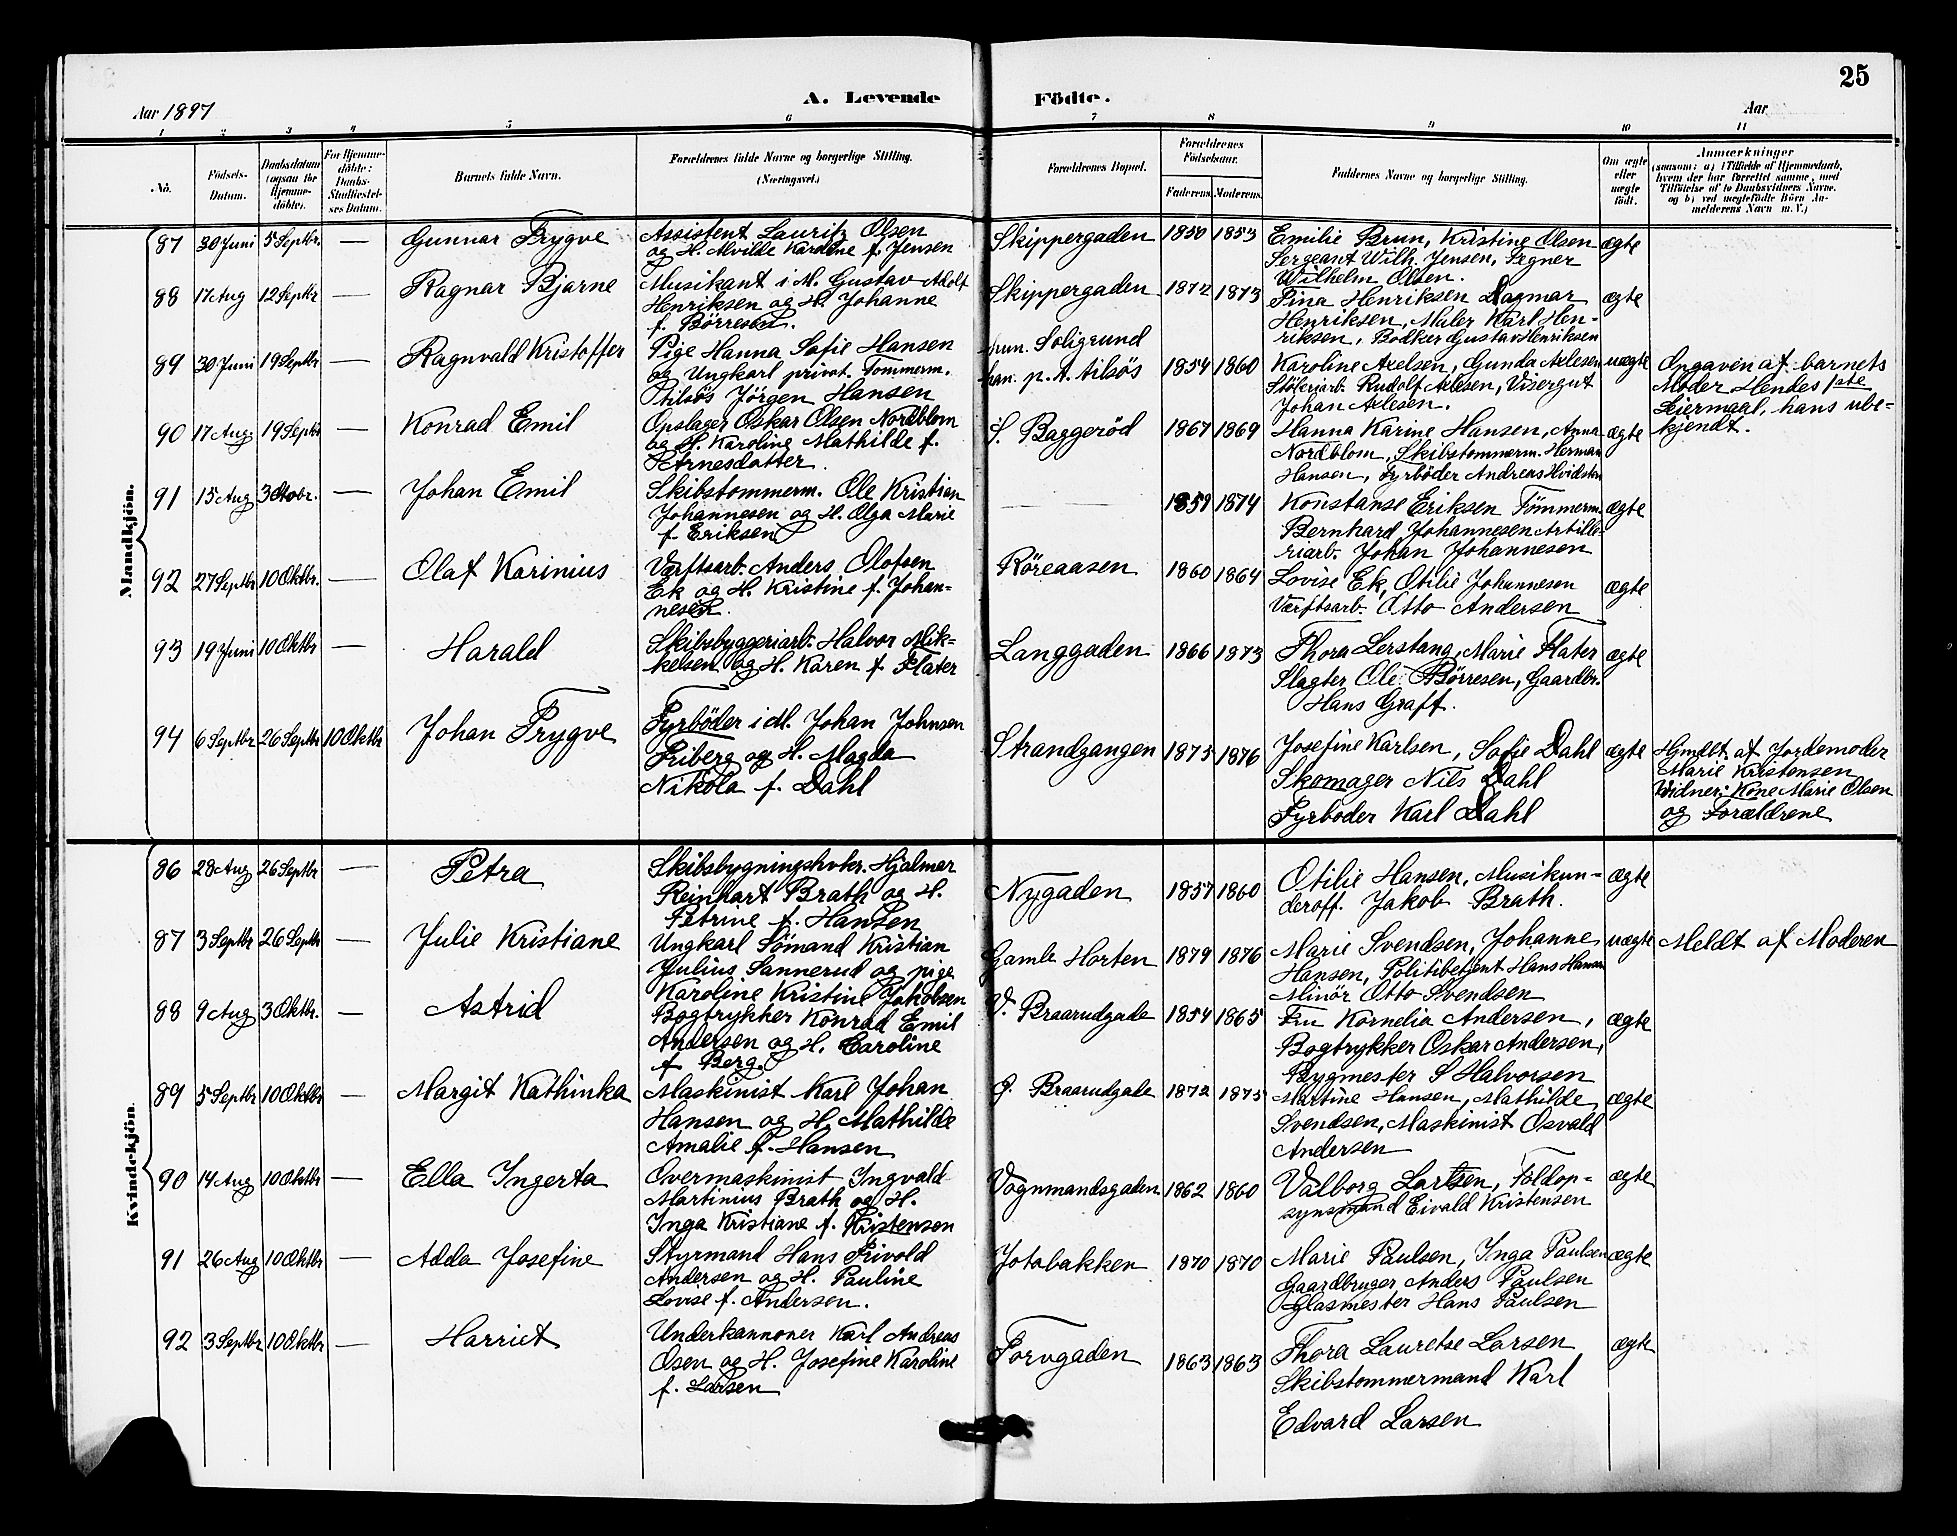 25
Aar 1897
A. Levende Födte.
Aar
1 2 3 4 5 6 7 8 9 10 11
No.
Födsels-Datum.
Daabsdatum (ogsaa for Hjemme-döbte).
For Hjemme-döbte: Daabs-Stadfæstel-ses Datum.
Barnets fulde Navn.
Forældrenes fulde Navne og borgerlige Stilling. (Næringsvei.)
Forældrenes Bopæl.
Forældrenes Födselsaar.
Faderens. Moderens.
Faddernes Navne og borgerlige Stilling.
Om ægte eller uægte födt.
Anmærkninger
(saasom: a) i Tilfælde af Hjemmedaab,
hvem der har forrettet samme, med
Tilföielse af to Daabsvidners Navne,
og b) ved uægtefödte Börn An-
melderens Navn m. V.)
Mandkjön.
87 30 Juni 5 Septbr. — Gunnar Trygve
Assistent Lauritz Olsen
og H. Alvilde Kardine f. Jensen
Skippergaden 1850 1853
Emilie Brun, Kristine Olsen
Sergeant Wilh. Jensen, Tegner
Wilhelm Olsen.
ægte
88 17 Aug 12 Septbr — Ragnar Bjarne
Musikant i M. Gustav Adolf
Henriksen og H. Johanne
f. Börresen.
Skippergaden 1872 1873
Tina Henriksen Dagmar
Henriksen, Maler Karl Hen-
riksen, Bödker Gustav Henriksen
ægte
89 30 Juni 19 Septbr — Ragnvald Kristoffer
Pige Hanna Sofie Hansen
og Ungkarl privat. Tommerm.
Jörgen Hansen
hun. Soligrund
han. p. t. tilsös
1854 1860
Karoline Axelsen, Gunda Axelsen
Rudolf Axelsen, Visergut
Johan Axlesen.
uægte
Opgaven af barnets
Moder Hendes 1ste
Leiermaal, hans ube-
kjendt.
90 17 Aug. 19 Septbr — Konrad Emil
Opslager Oskar Olsen Nordblom
og H. Karoline Mathilde f.
Arnesdatter.
S. Baggeröd 1867 1869
Hanna Karine Hansen, Anna
Nordblom, Skibstommerm. Herman
Hansen, Fyrböder Andreas Hvidsten
ægte
91 15 Aug 3 — Johan Emil
Skibstommerm. Ole Kristian
Johannesen og H. Olga Marie
f. Eriksen
— — 1859 1874
Konstanse Eriksen Tömmerm.
Bernhard Johannesen Artille-
riarb. Johan Johannesen
ægte
92 27 Septbr 10 Oktbr. — Olaf Karinius
Værftsarb. Anders Olofsen
Ek og H. Kristine f. Johan-
nesen.
Röreaasen 1860 1864
Lovise Ek, Otilie Johannesen
Værftsarb. Otto Andersen
ægte
93 19 Juni 10 Oktbr — Harald
Skibsbyggeriarb. Halvor Mik-
kelsen og H. Karen f. Flater
Langgaden 1866 1873
Thora Lerstang, Marie Flater
Slagter Ole Börresen, Gaardbr.
Hans Graff.
ægte
94 6 Septbr 26 Septbr 10 Oktbr Johan Trygve
Fyrböder i M. Johan Johnsen
Friberg og H. Magda
Nikola f. Dahl
Strandgangen 1873 1876
Josefine Karlsen, Sofie Dahl
Skomager Nils Dahl
Fyrböder Karl Dahl
ægte
Hjmdbt. af Jordemoder
Marie Kristensen
Vidner: Kone Marie Olsen
og Forældrene
Kvindekjön.
86 28 Aug 26 Septbr — Petra
Skibsbygningshvkr. Hjalmar
Reinhart Brath og H.
Petrine f. Hansen
Nygaden 1857 1860
Otilie Hansen, Musikun-
deroff. Jakob Brath.
ægte
87 3 Septbr 26 Septbr — Julie Kristiane
Ungkarl Sömand Kristian
Julius Sannerud og pige
Karoline Kristine Jakobsen
Gamle Horten 1879 1876
Marie Svendsen, Johanne
Hansen, Politibetjent Hans Hansen
Minör Otto Svendsen
uægte Meldt af Moderen
88 9 Aug 3 Oktbr. — Astrid
Bogtrykker Konrad Emil
Andersen og H. Caroline
f. Berg.
V. Braarudgade 1854 1865
Fru Kornelia Andersen,
Bogtrykker Oskar Andersen,
Bygmester S Halvorsen
ægte
89 5 Septbr 10 Oktbr — Margit Kathinka
Maskinist Karl Johan
Hansen og H. Mathilde
Amalie f. Hansen
Ö. Braarudgade 1872 1875
Martine Hansen, Mathilde
Svendsen, Maskinist Osvald
Andersen
ægte
90 14 Aug 10 Oktbr — Ella Ingerta
Overmaskinist Ingvald
Martinius Brath og H.
Inga Kristiane f. Kristensen
Vognmandsgaden 1862 1860
Valborg Larsen, Toldop-
synsmand Eivald Kristensen
ægte
91 26 Aug 10 Oktbr — Adda Josefine
Styrmand Hans Tivold
Andersen og H. Pauline
Lovise f. Andersen.
Jotobakken 1870 1870
Marie Paulsen, Inga Paulsen
Gaardbruger Anders Paulsen
Glasmester Hans Paulsen
ægte
92 3 Septbr 10 Oktbr — Harriet
Underkannoner Karl Andreas
Osen og H. Josefine Karoline
f. Larsen
Torvgaden 1863 1863
Thora Lauretse Larsen
Skibstommermand Karl
Edvard Larsen
ægte